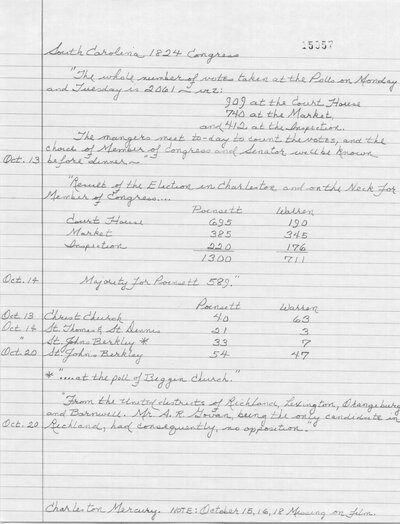 South Carolina 1824 Congress
15357
"The whole number of votes taken at the Polls on Monday
and Tuesday is 2061 ~ viz:
909 at the Court House
740 at the Market,
and 412 at the Inspection.
The mangers meet to-day to count the votes, and the
choice of Member of Congress and Senator will be known
Oct. 13 before dinner ~ "
"Result of the Election in Charleston and on the Neck for
Member of Congress....
Poinsett Warren
Court House 695 190
Market 385 345
Inspection 220 176
1300 711
Oct. 14 Majority for Poinsett 589."
Poinsett Warren
Oct 13 Christ Church 40 63
Oct 14 St. Thomas & St. Dennis 21 3
" St. Johns Berkley * 33 7
Oct. 20 St. Johns Berkley 54 47
* "....at the poll of Biggin Church."
"From the United districts of Richland, Lexington, Orangeburg
and Barnwell. Mr. A. R. Govan, being the only candidate in
Oct. 20 Richland, had consequently, no opposition."
Charleston Mercury. NOTE: October 15, 16, 18 Missing on Film.